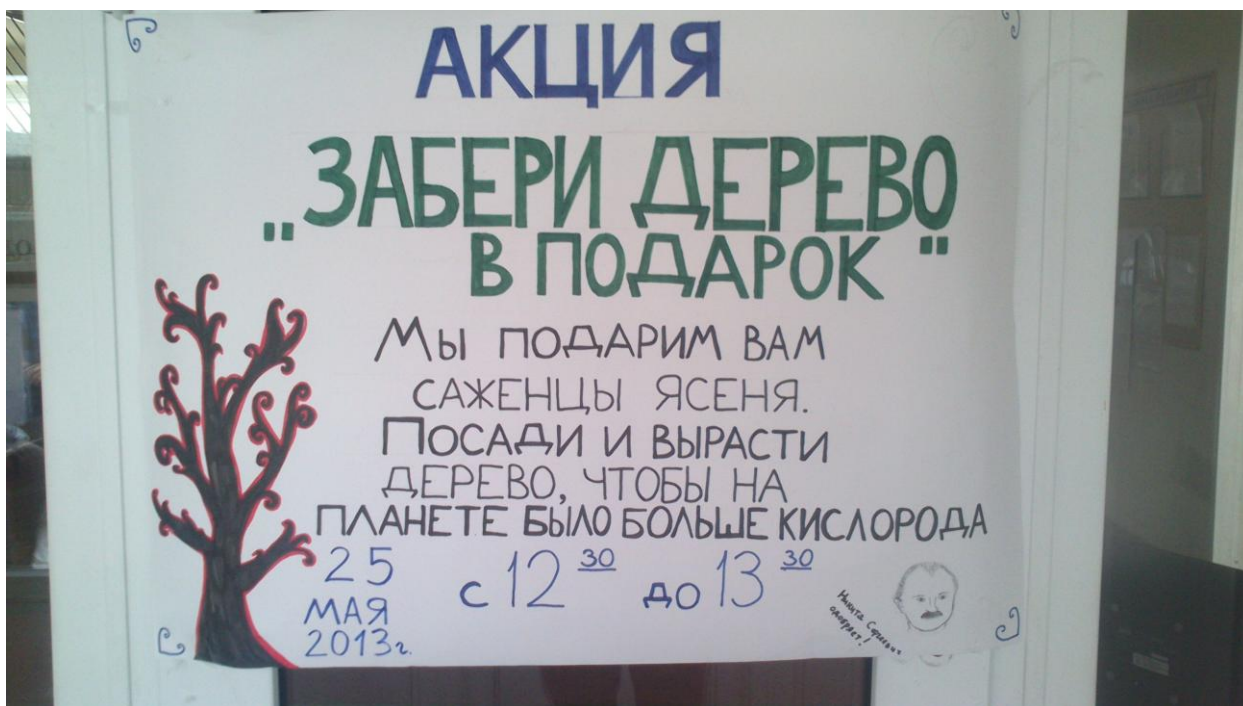 АКЦИЯ
„ЗАБЕРИ ДЕРЕВО
В ПОДАРОК"
МЫ ПОДАРИМ ВАМ
САЖЕНЦЫ ЯСЕНЯ.
ПОСАДИ И ВЫРАСТИ
ДЕРЕВО, ЧТОБЫ НА
ПЛАНЕТЕ БЫЛО БОЛЬШЕ КИСЛОРОДА
25
МАЯ
2013г.
с 12 30 до 13 30
Никита Сергеевич
одобряет!